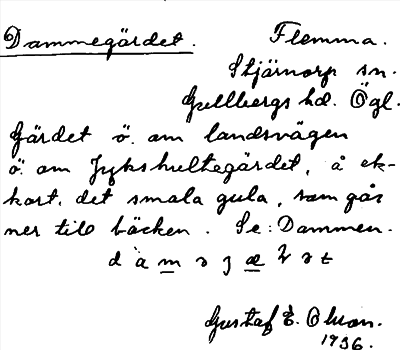 Dammegärdet.
Flemma.
Stjärnorp sn.
Gullbergs hd. Ögl.
Gärdet ö. om landsvägen
ö. om Jykshultegärdet, å ek-
kart. det smala gula, som går
ner till bäcken. Se: Dammen.
Gustaf E. Olson.
1936.